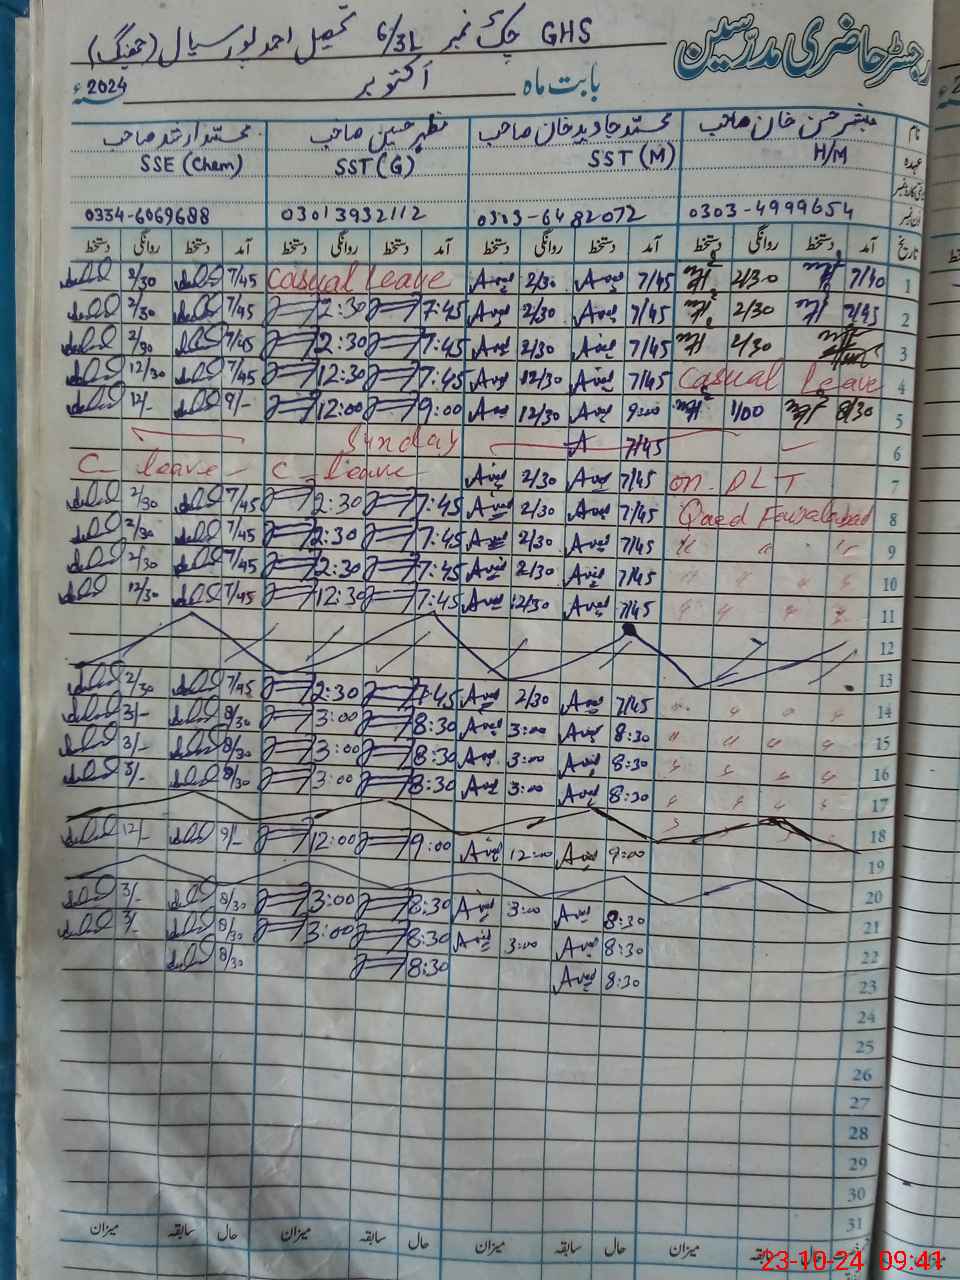 رجسٹر حاضری مدرسین
GHS چک نمبر 6/3L تحصیل احمد پور سیال (جھنگ)
بابت ماہ اکتوبر 2024ء
نام مبشر حسن خان صاحب محمد جاوید خان صاحب مظہر حسین صاحب محمد ارشد صاحب
عہدہ H/M SST (M) SST (G) SSE (Chem)
0303-4999654 0303-6482072 03013932112 0334-6069688
تاریخ آمد دستخط روانگی دستخط آمد دستخط روانگی دستخط آمد دستخط روانگی دستخط آمد دستخط روانگی دستخط
1 7/40 2/30 7/45 2/30 Casual Leave 7/45 2/30
2 7/45 2/30 7/45 2/30 7:45 2:30 7/45 2/30
3 2/30 7/45 2/30 7:45 2:30 7/45 2/30
4 Casual leave 7/45 12/30 7:45 12:30 7/45 12/30
5 8/30 1/00 9:00 12/30 9:00 12:00 9/- 12/-
6 7/45 Sunday
7 on DLT 7/45 2/30 C_ leave C_ leave
8 Qaed Faisalabad 7/45 2/30 7:45 2:30 7/45 2/30
9 " " " 7/45 2/30 7:45 2:30 7/45 2/30
10 " " " " 7/45 2/30 7:45 2:30 7/45 2/30
11 " " " " 7/45 12/30 7:45 12:30 7/45 12/30
12
13
14 " " " " 7/45 2/30 7:45 2:30 7/45 2/30
15 " " " " 8:30 3:00 8:30 3:00 8/30 3/-
16 " " " " 8:30 3:00 8:30 3:00 8/30 3/-
17 " " " " 8:30 3:00 8:30 3:00 8/30 3/-
18
19 9:00 12:00 9:00 12:00 9/- 12/-
20
21 8:30 3:00 8:30 3:00 8/30 3/-
22 8:30 3:00 8:30 3:00 8/30 3/-
23 8:30 8:30 8/30
24
25
26
27
28
29
30
31
حال سابقہ میزان حال سابقہ میزان حال سابقہ میزان حال سابقہ میزان
23-10-24 09:41